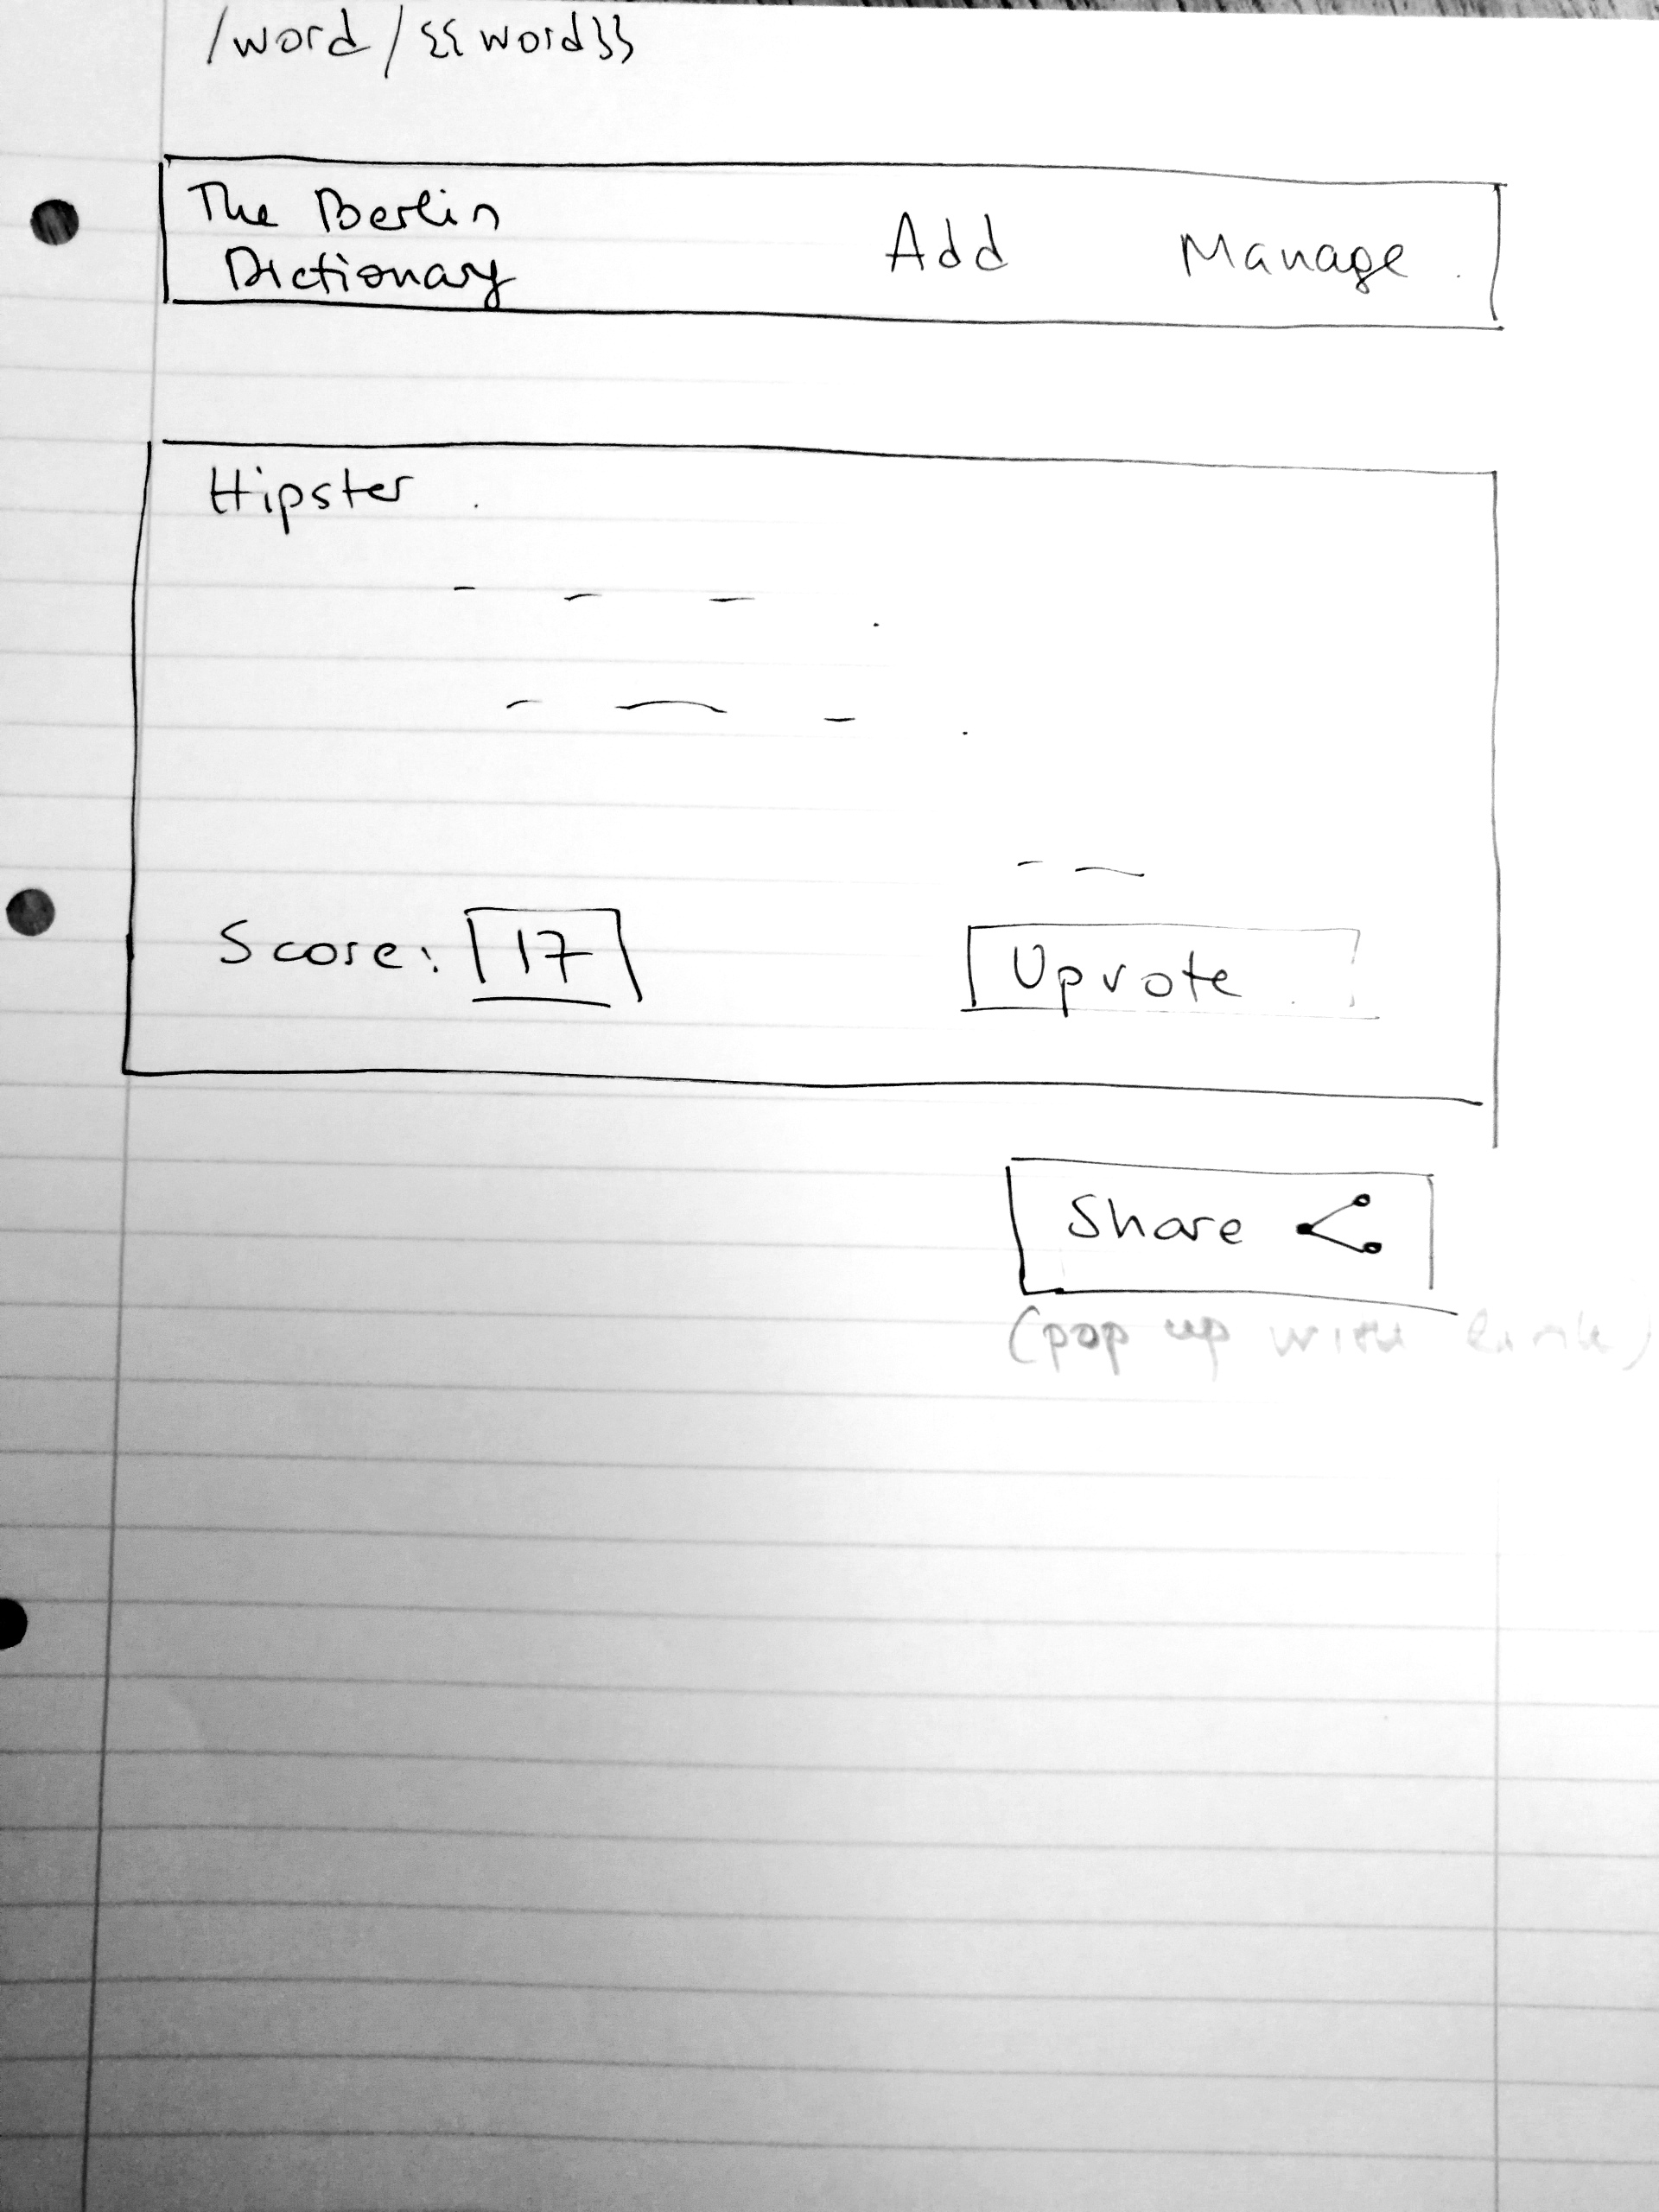 /word/{{word}}
The Berlin
Dictionary
Add
Manage
Hipster
Score: 17
Upvote
Share
(pop up with link)